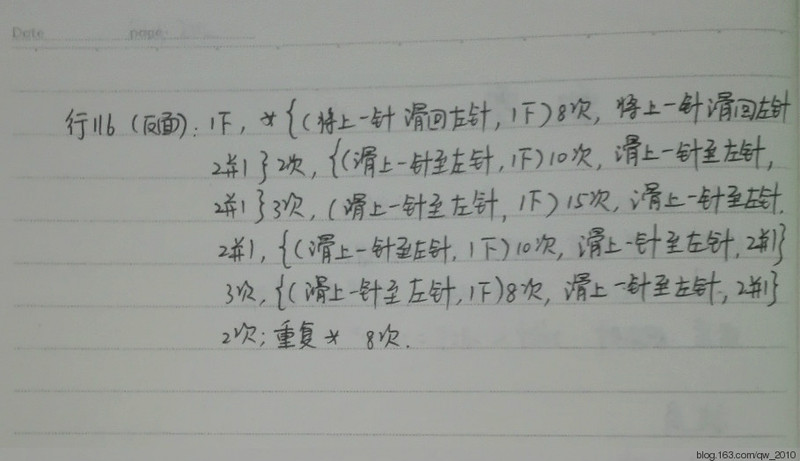 Date
行116（反面）：1下，*{（将上一针滑回左针，1下）8次，将上一针滑回左针
2并1}2次，{（滑上一针至左针，1下）10次，滑上一针至左针，
2并1}3次，（滑上一针至左针，1下）15次，滑上一针至左针，
2并1，{（滑上一针至左针，1下）10次，滑上一针至左针，2并1}
3次，{（滑上一针至左针，1下）8次，滑上一针至左针，2并1}
2次；重复* 8次.
blog.163.com/qw_2010